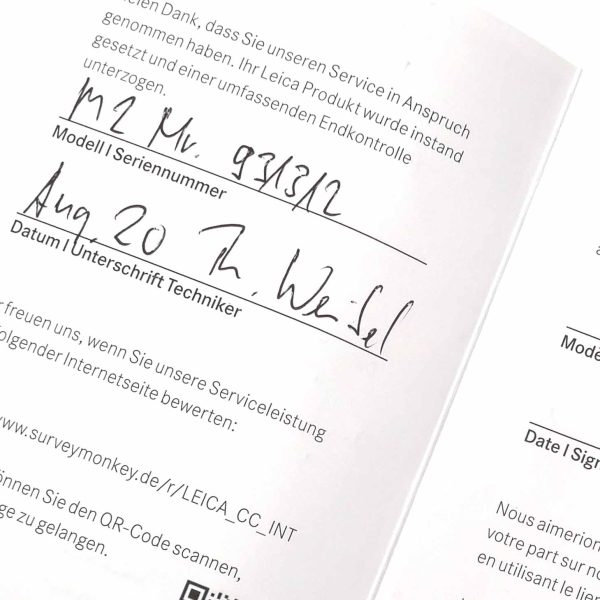 elen Dank, dass Sie unseren Service in Anspruch
genommen haben. Ihr Leica Produkt wurde instand
gesetzt und einer umfassenden Endkontrolle
unterzogen.
M2 Nr. 931312
Modell | Seriennummer
Aug. 20 Th. Weisel
Datum | Unterschrift Techniker
r freuen uns, wenn Sie unsere Serviceleistung
folgender Internetseite bewerten:
www.surveymonkey.de/r/LEICA_CC_INT
önnen Sie den QR-Code scannen,
ge zu gelangen.
Modè
Date | Sign
Nous aimerion
votre part sur no
en utilisant le lie